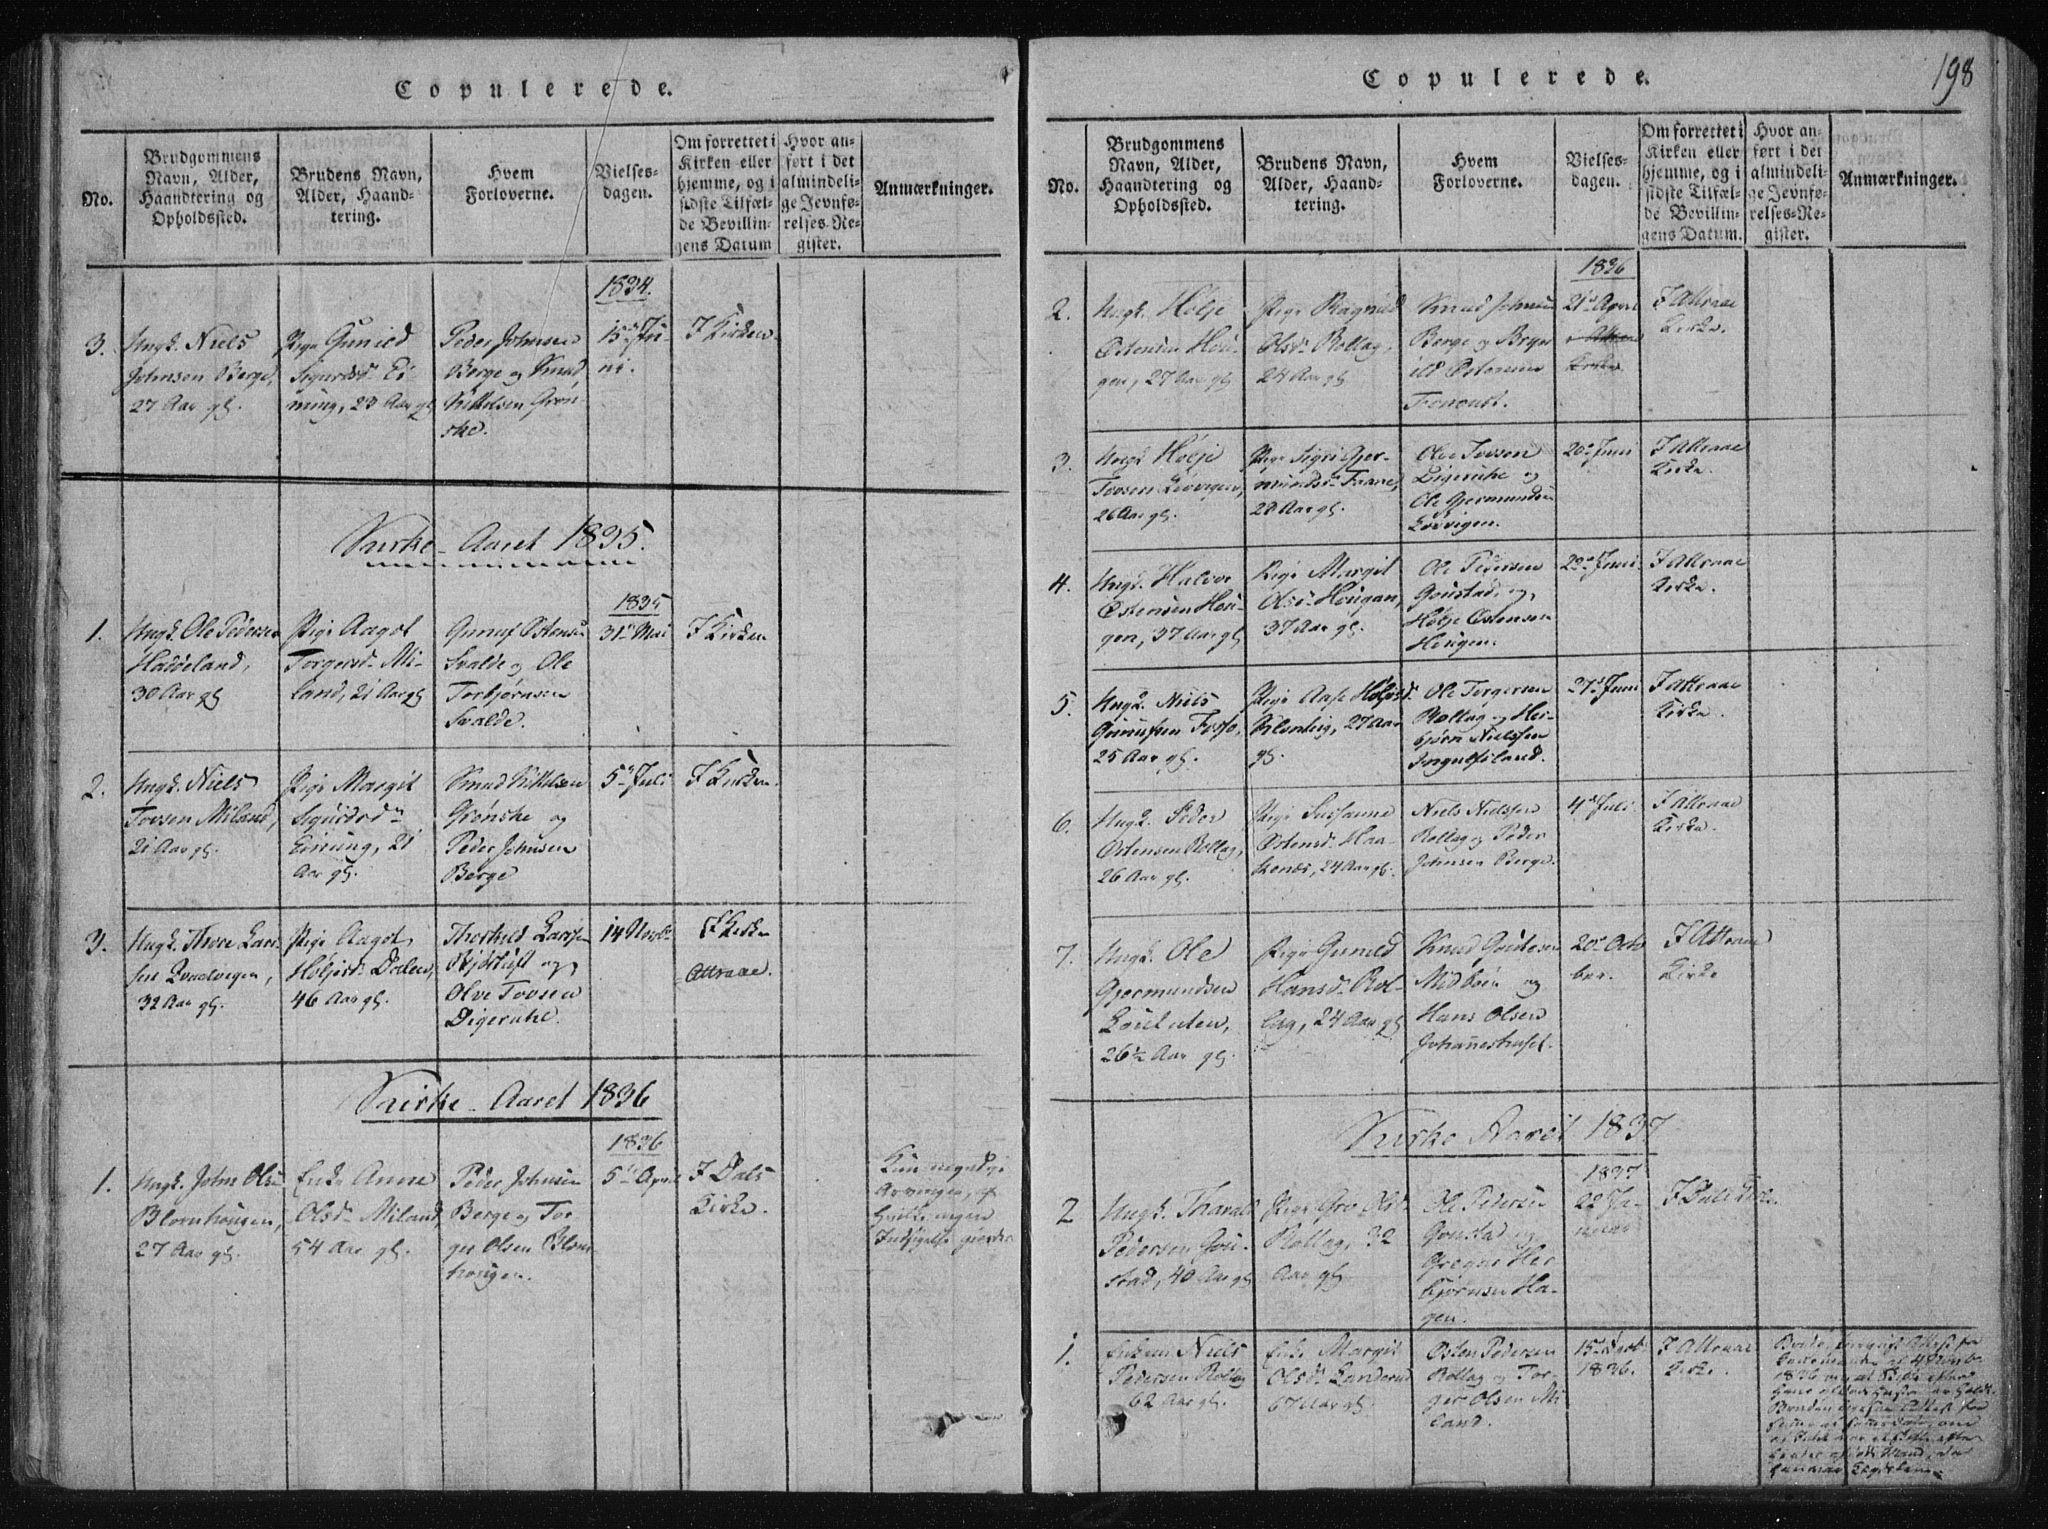 Copulerede.
No.
Brudgommens
Navn, Alder,
Haandtering og
Opholdssted.
Brudens Navn,
Alder, Haand-
tering.
Hvem
Forloverne.
Vielses-
dagen.
Om forrettet i
Kirken eller
hjemme, og i
sidste Tilfæl-
de Bevillin-
gens Datum
Hvor an-
ført i det
almindeli-
ge Jevnfø-
relses-Re-
gister.
Anmærkninger.
1834.
3.
Ungk. Niels
Johnsen Berge,
27 Aar gl.
Pige Gunild
Sigurdsd. Ei-
ning, 23 Aar gl
Peder Johnsen
Berge og Knud
Kittelsen Grøn-
ske.
15de Ju-
ni.
I Kirken.
Kirke-Aaret 1835.
1835
1.
Ungk. Ole Pedersen
Haddeland,
30 Aar gl
Pige Aagot
Torgersd. Mi-
land, 21 Aar gl
Gunuf Ostensen
Svalde og Ole
Torbjørnsen
Svalde.
31te Mai
I Kirken
2.
Ungk. Niels
Tovsen Miland,
21 Aar gl.
Pige Margit
Sigurdsd.
Einung, 21
Aar gl.
Knud Kittelsen
Grønske og
Peder Johnsen
Berge
5te Juli
I Kirken.
3.
Ungk. Thore Lar-
sen
32 Aar gl.
Pige Aagot
Høljesd. Dalen,
46 Aar gl.
Larsen
og
Olve Tovsen
Digeruke.
14 Novbr
I Kirken
Attraae.
Kirke-Aaret 1836
1836
1.
Ungk. John Olsen
Blomhougen,
27 Aar gl.
Enke Anne
Olsd. Miland,
54 Aar gl.
Peder Johnsen
Berge og Tor-
ger Olsen Blom-
hougen.
5te April
I Dals
Kirke.
Kun myndige
Arvinger, og
Copulerede.
198
No.
Brudgommens
Navn, Alder,
Haandtering og
Opholdssted.
Brudens Navn,
Alder, Haand-
tering.
Hvem
Forloverne.
Vielses-
dagen.
Om forrettet i
Kirken eller
hjemme, og i
sidste Tilfæl-
de Bevillin-
gens Datum.
Hvor an-
ført i det
almindeli-
ge Jevnfø-
relses-Re-
gister.
Anmærkninger.
1836
2.
Ungk. Hølje
Ostensen Hou-
gen, 27 Aar gl.
Pige Ragnild
Olsd. Rollag,
24 Aar gl.
Knud Johnsen
Berge og Bryn-
ild Ostensen
21de April
I Attraae
Kirke.
3.
Ungk. Hølje
Tovsen
26 Aar gl.
Pige Sigri Gjer-
mundsd. Traae,
28 Aar gl.
Ole Tovsen
Digeruke og
Ole Gjermundsen
20de Juni
I Attraae
Kirke.
4.
Ungk. Halvor
Ostensen Hou-
gen, 37 Aar gl
Pige Margit
Olsd. Hougan,
37 Aar gl.
Ole Pedersen
Goustad, og
Hølje Ostensen
Hougen.
I Attraae
Kirke.
5.
Ungk. Niels
Gunufsen Fosso,
25 Aar gl.
Pige Aase Høljesd.
27 Aar
gl.
Ole Torgersen
Rollag og Her-
bjørn Nielssen
Ingulfsland.
27de Juni
I Attraae
Kirke.
6.
Ungk. Peder
Ostensen Rollag,
26 Aar gl.
Pige Susanne
Ostensd. Haa-
kenæs, 24 Aar gl.
Niels Nielssen
Rollag og Peder
Johnsen Berge.
4de Juli
I Attraae
Kirke.
7.
Ungk. Ole
Gjermundsen
26½ Aar gl.
Pige Gunild
Hansd. Rol-
lag, 24 Aar gl
Knud Goutesen
Midbøen og
Hans Olsen
Johanneshuset.
20de Octo
ber.
I Attraae
Kirke
Kirke Aaret 1837
1837
2
Ungk. Tharald
Pedersen Gou-
stad, 40 Aar gl
Pige Gro Olsd.
Rollag, 32
Aar gl
Ole Pedersen
Goustad og
Gregar Her-
bjørnsen Ha-
gen.
22 Ja-
nuar
I Dals Kirke.
1.
Enkem. Niels
Pedersen Rollag
62 Aar gl.
Enke Margit
Olsd. Landerud
67 Aar gl.
Osten Pedersen
Rollag og Tor-
ger Olsen Mi-
land.
1836.
I Attraae
Kirke.